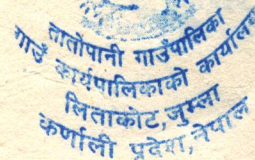 तातोपानी गाउँपालिका
गाउँ कार्यपालिकाको कार्यालय
लिताकोट,जुम्ला
कर्णाली प्रदेश,नेपाल